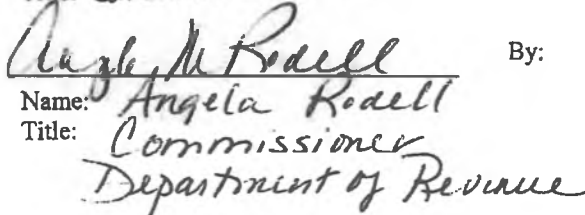 Angela M Rodell By:
Name: Angela Rodell
Title: Commissioner
Department of Revenue